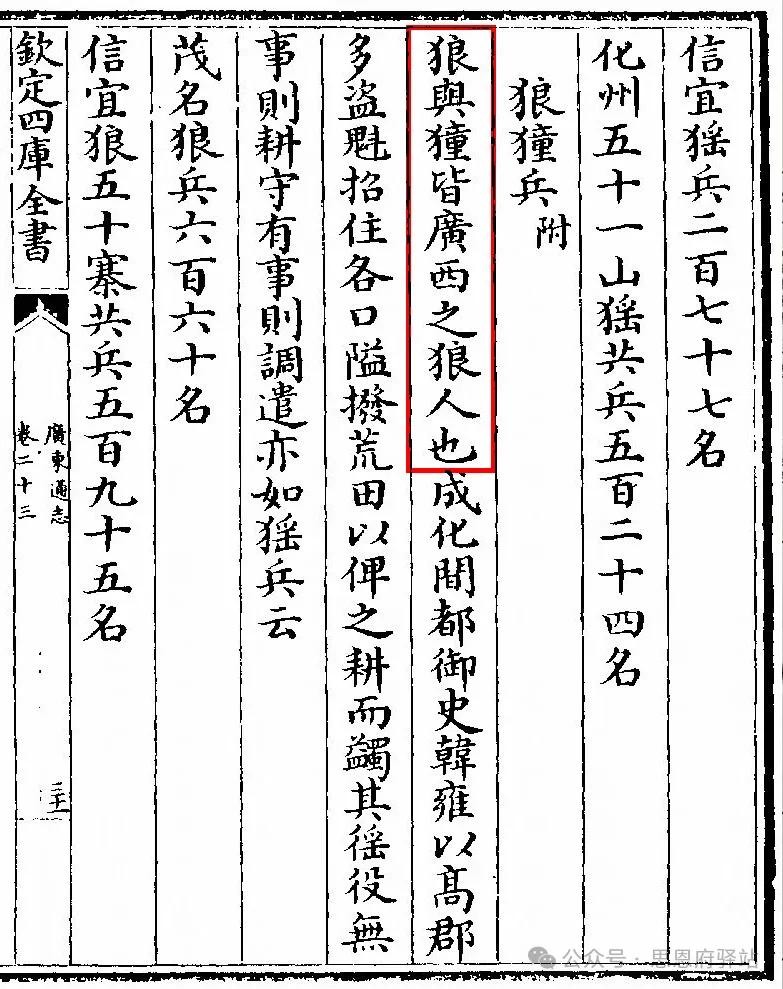 信宜猺兵二百七十七名
化州五十一山猺共兵五百二十四名
狼獞兵附
狼與獞皆廣西之狼人也成化間都御史韓雍以高郡
多盜魁招住各口隘撥荒田以俾之耕而蠲其徭役無
事則耕守有事則調遣亦如猺兵云
茂名狼兵六百六十名
信宜狼五十寨共兵五百九十五名
欽定四庫全書
廣東通志
卷二十三
公众号 · 思恩府驿站